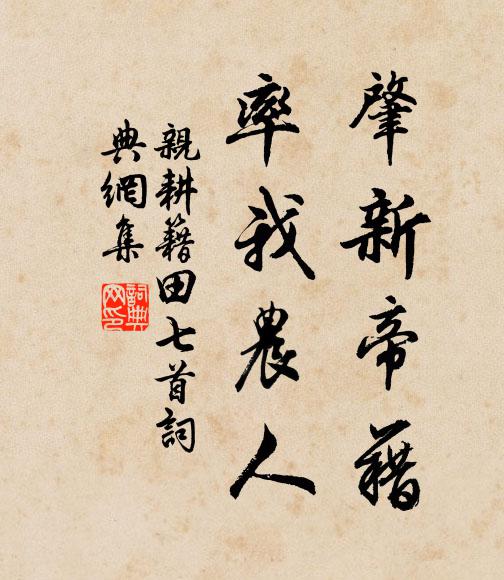 肇新帝籍
率我農人
親耕籍田七首詞
典網集
詞典網印